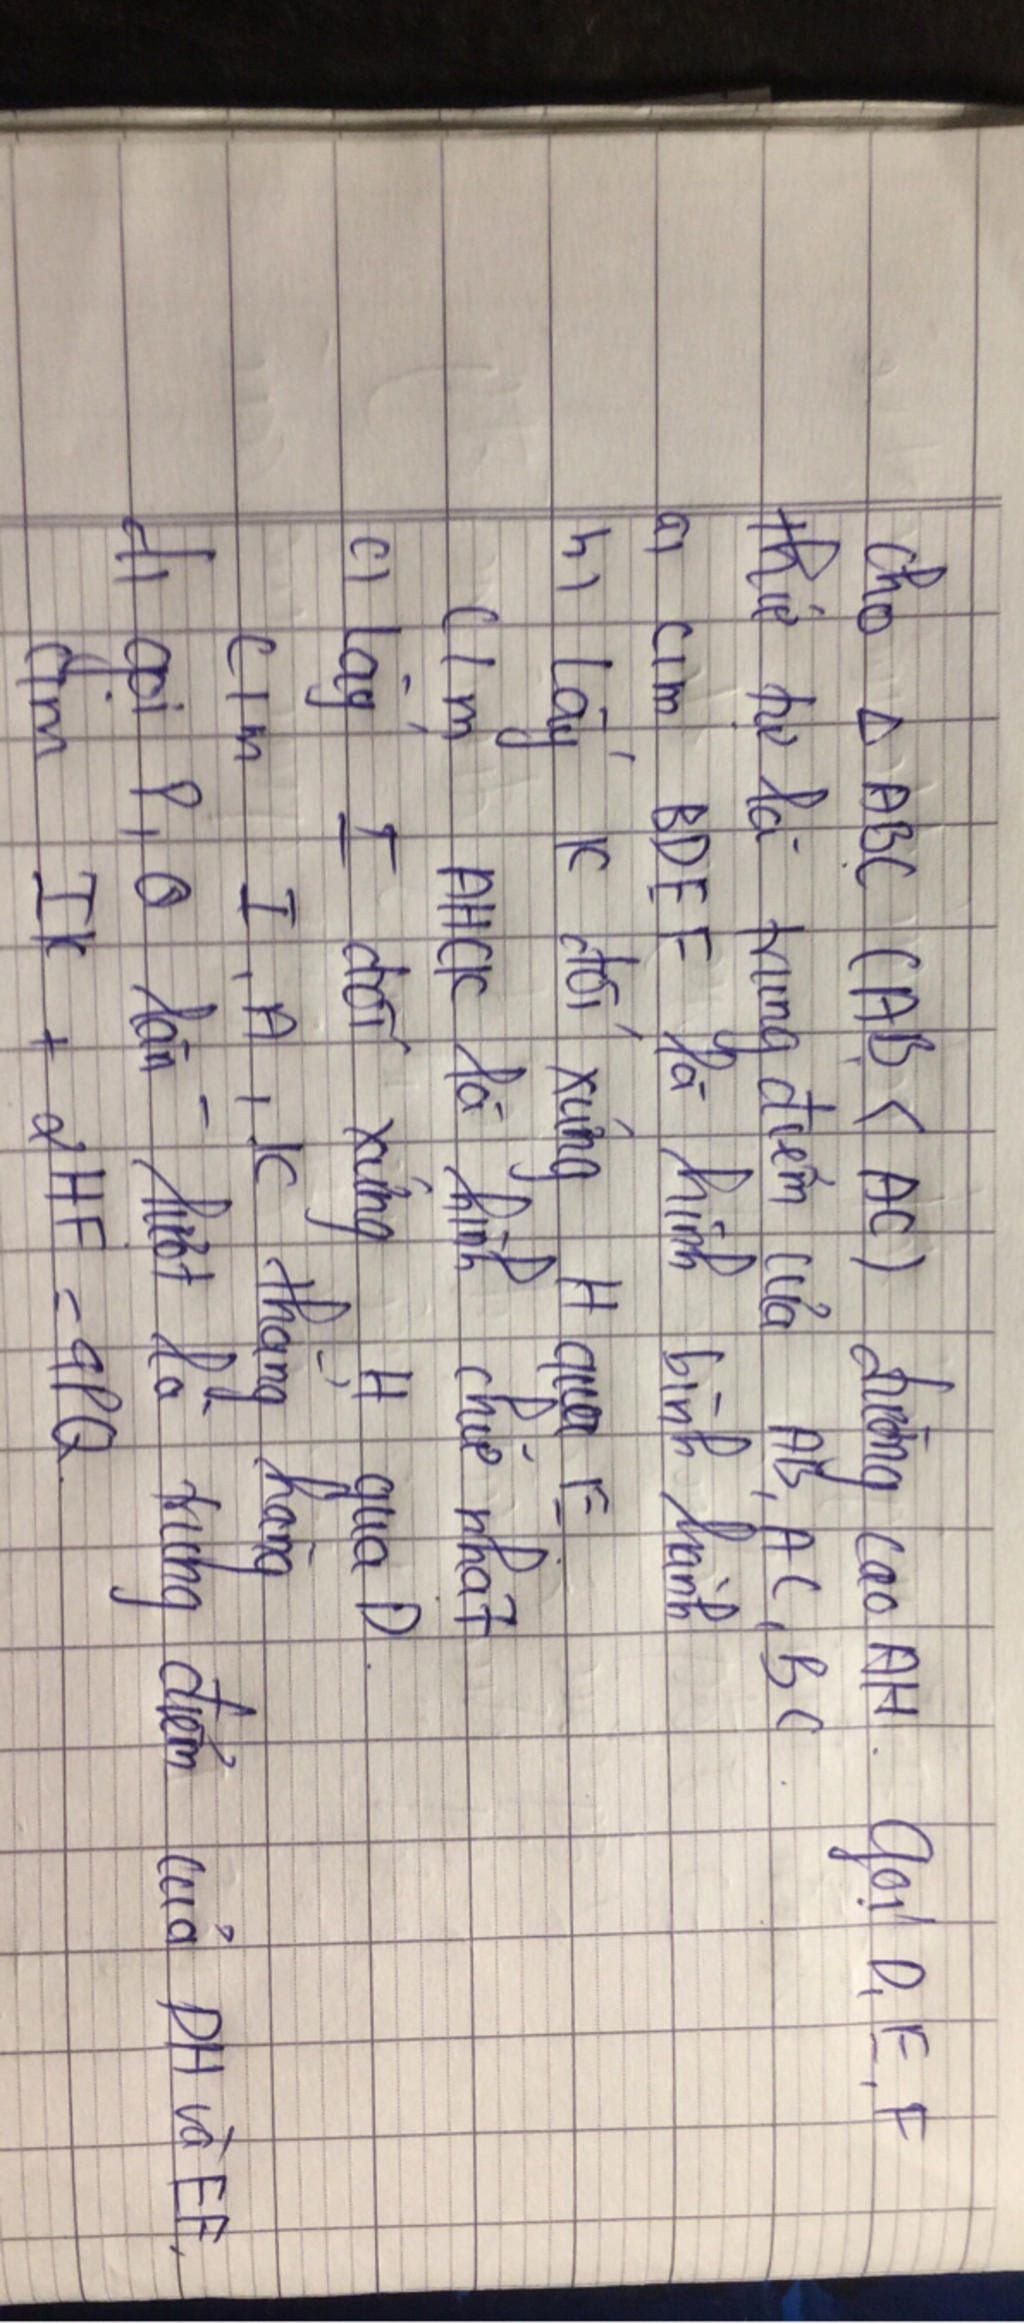 Cho △ ABC (AB < AC) đường cao AH. Gọi D, E, F
thứ tự là trung điểm của AB, AC, BC.
a, c/m BDEF là hình bình hành
b, Lấy K đối xứng H qua E.
c/m AHCK là hình chữ nhật
c, Lấy I đối xứng H qua D.
c/m I, A, K thẳng hàng
d, Gọi P, Q lần lượt là trung điểm của DH và EF,
c/m IK + 2HF = 4PQ.